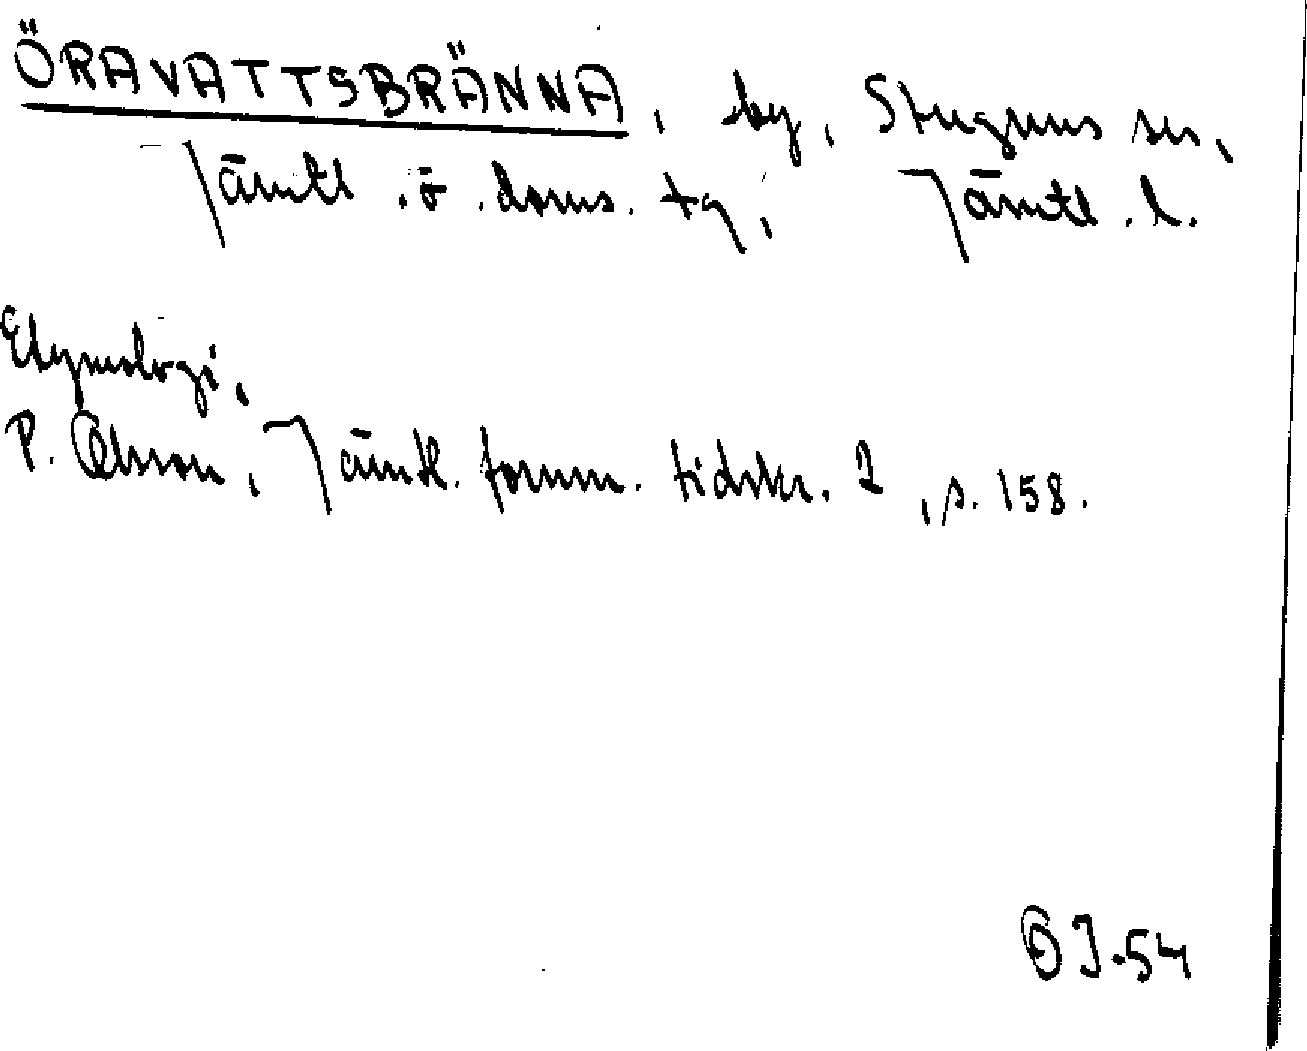 ÖRAVATTSBRÄNNA, by, Stuguns sn,
Jämtl. ö. doms. tg, Jämtl. l.
Etymologi,
P. Olsson, Jämtl. fornm. tidskr. 2, s. 158.
OJ-54